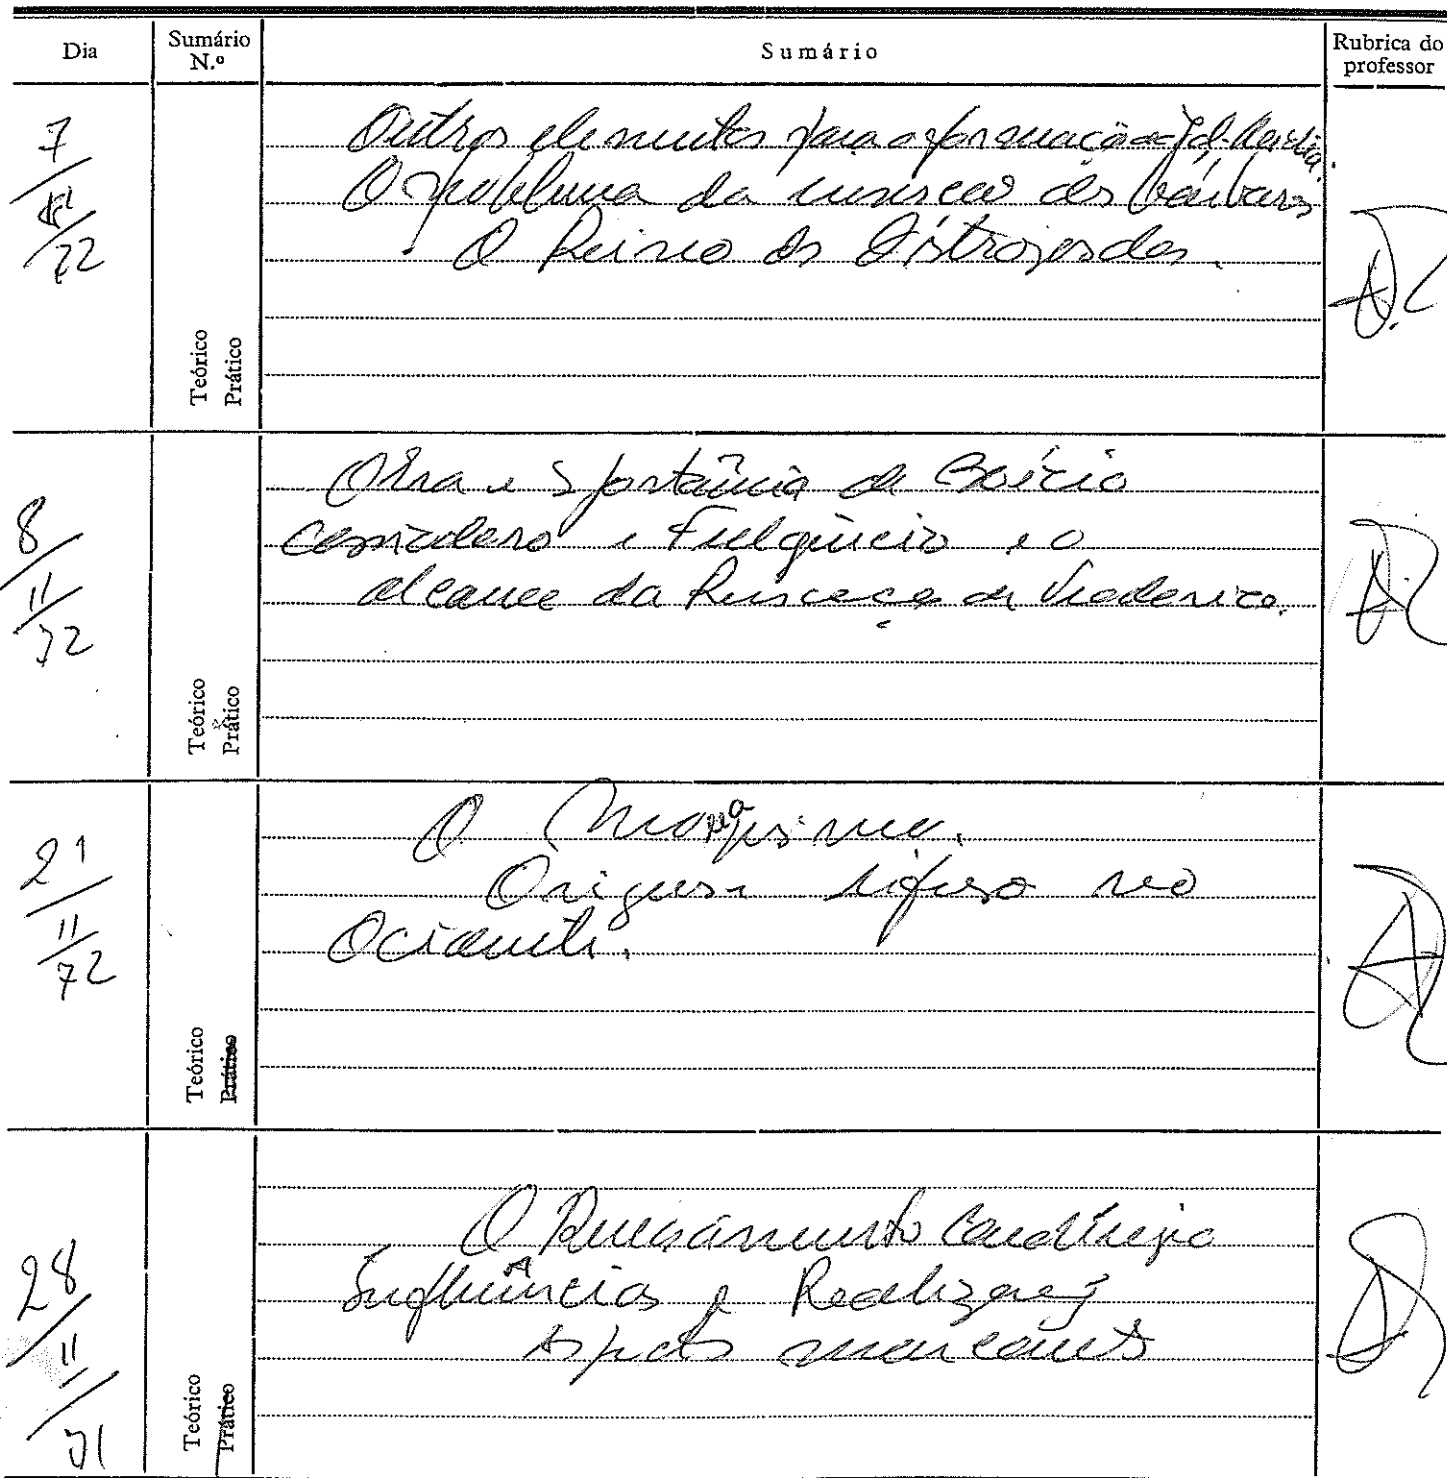 Dia
Sumário N.º
Sumário
Rubrica do professor
7/11/72
Outros elementos para a formação da Id. Média.
O problema da invasão dos bárbaros
O Reino dos Ostrogodos.
Teórico
Prático
8/11/72
Obra e Importância de Boécio
Cassiodoro e Fulgêncio e o
alcance da Renascença de Teodorico.
Teórico
Prático
21/11/72
O Monaquismo.
Origem difusão no
Ocidente.
Teórico
Prático
28/11/71
O Renascimento Carolíngio
Influências e Realizações
Aspectos marcantes
Teórico
Prático